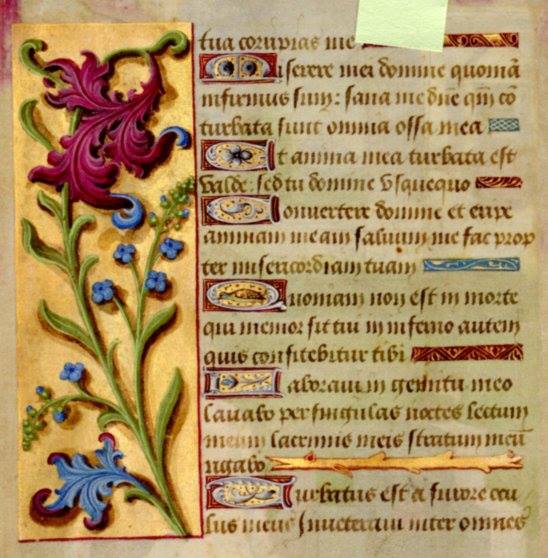 tua corripias me
Miserere mei domine quoniā
infirmus sum: sana me dn̄e qm̄ cō
turbata sunt omnia ossa mea
Et anima mea turbata est
valde: sed tu domine vsquequo
Conuertere domine et eripe
animam meam saluum me fac prop
ter misericordiam tuam
Quoniam non est in morte
qui memor sit tui in inferno autem
quis confitebitur tibi
Laboraui in gemitu meo
lauabo per singulas noctes lectum
meum lacrimis meis stratum meū
rigabo
Turbatus est a furore ocu
lus meus Inueteraui inter omnes